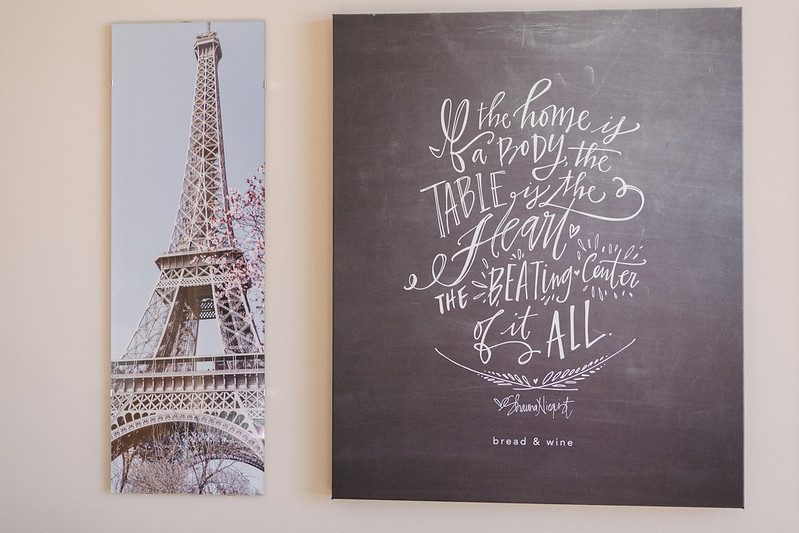 If the home is
a BODY, the
TABLE is the
Heart
THE BEATing Center
of it ALL.
Shauna Niequist
bread & wine